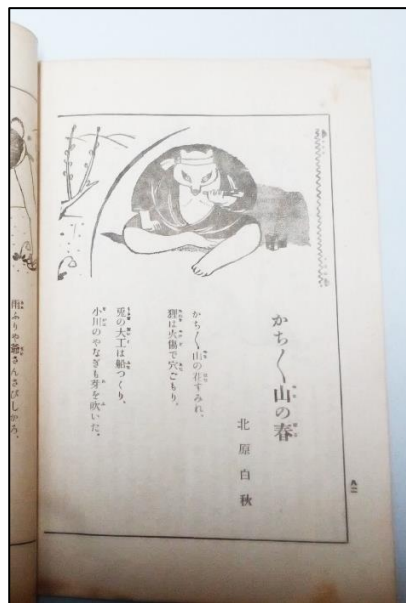 かち〳〵山の春
北原白秋
かち〳〵山の荘すみれ、
狸は火傷で穴ごもり。
兎の大工は船つくり、
小川のやなぎも芽を吹いた。
雨ふりや爺さんさびしやろ、
八二